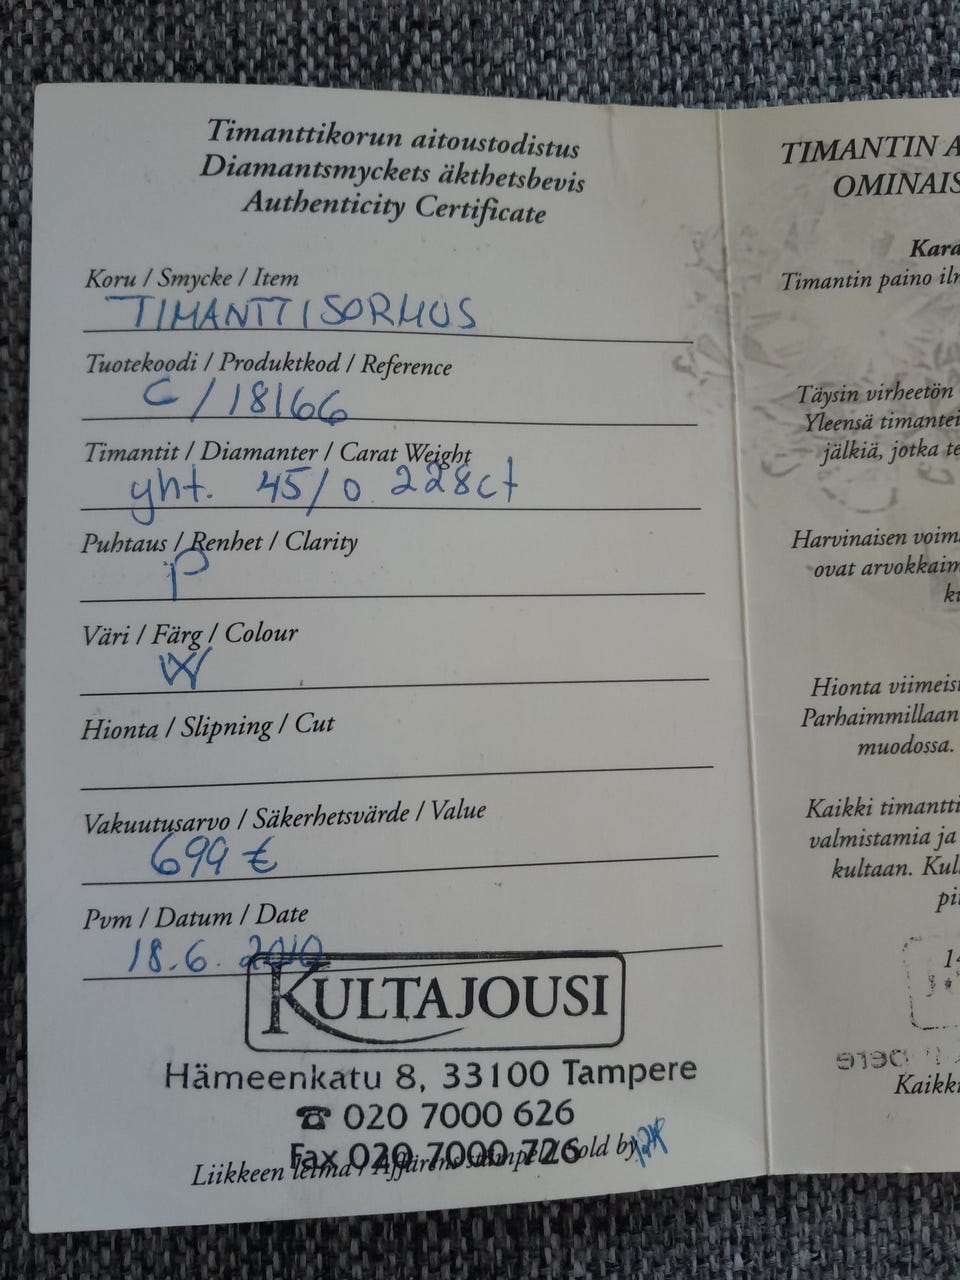 Timanttikorun aitoustodistus
Diamantsmyckets äkthetsbevis
Authenticity Certificate
Koru / Smycke / Item
TIMANTTISORMUS
Tuotekoodi / Produktkod / Reference
C/18166
Timantit / Diamanter / Carat Weight
yht. 45/0.228ct
Puhtaus / Renhet / Clarity
P
Väri / Färg / Colour
W
Hionta / Slipning / Cut
Vakuutusarvo / Säkerhetsvärde / Value
699 €
Pvm / Datum / Date
18.6.2010
KULTAJOUSI
Hämeenkatu 8, 33100 Tampere
☎ 020 7000 626
Fax 020 7000 726
Liikkeen leima / Affärens stämpel / Sold by
TIMANTIN A
OMINAIS
Kara
Timantin paino iln
Täysin virheetön
Yleensä timantei
jälkiä, jotka te
Harvinaisen voim
ovat arvokkaim
ku
Hionta viimeist
Parhaimmillaan
muodossa.
Kaikki timantti
valmistamia ja
kultaan. Kul
pi
14
Kaikki